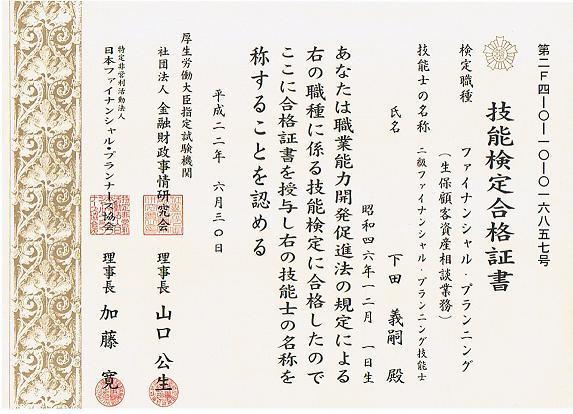 第二F四-〇-一〇-〇一六八五七号
技能検定合格証書
検定職種 ファイナンシャル・プランニング
(生保顧客資産相談業務)
技能士の名称 二級ファイナンシャル・プランニング技能士
氏名 下田 義嗣 殿
昭和四六年一二月 一日生
あなたは職業能力開発促進法の規定による
右の職種に係る技能検定に合格したので
ここに合格証書を授与し右の技能士の名称を
称することを認める
平成二二年 六月三〇日
厚生労働大臣指定試験機関
社団法人 金融財政事情研究会 理事長 山口 公生
特定非営利活動法人
日本ファイナンシャル・プランナーズ協会 理事長 加藤 寛